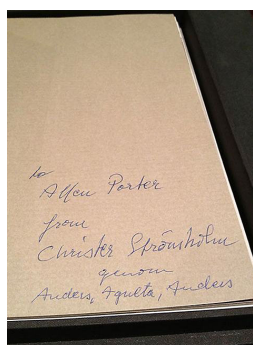 to
Allen Porter
from
Christer Strömholm
genom
Anders, Agneta, Anders